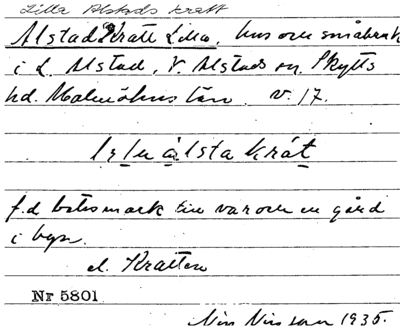 Lilla Alstads kratt
Alstad Kratt Lilla, hus och småbruk
i L. Alstad, V. Alstads sn, Skytts
hd. Malmöhus län. v. 17.
àlsta krát
f.d. betesmark till var och en gård
i byn.
el. Kratten
Nr 5801
Nils Nilsson 1935.